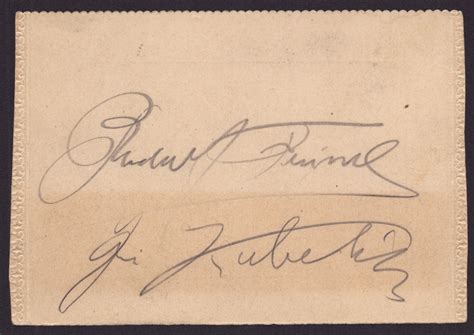 Rudolf Friml
Jan Kubelik